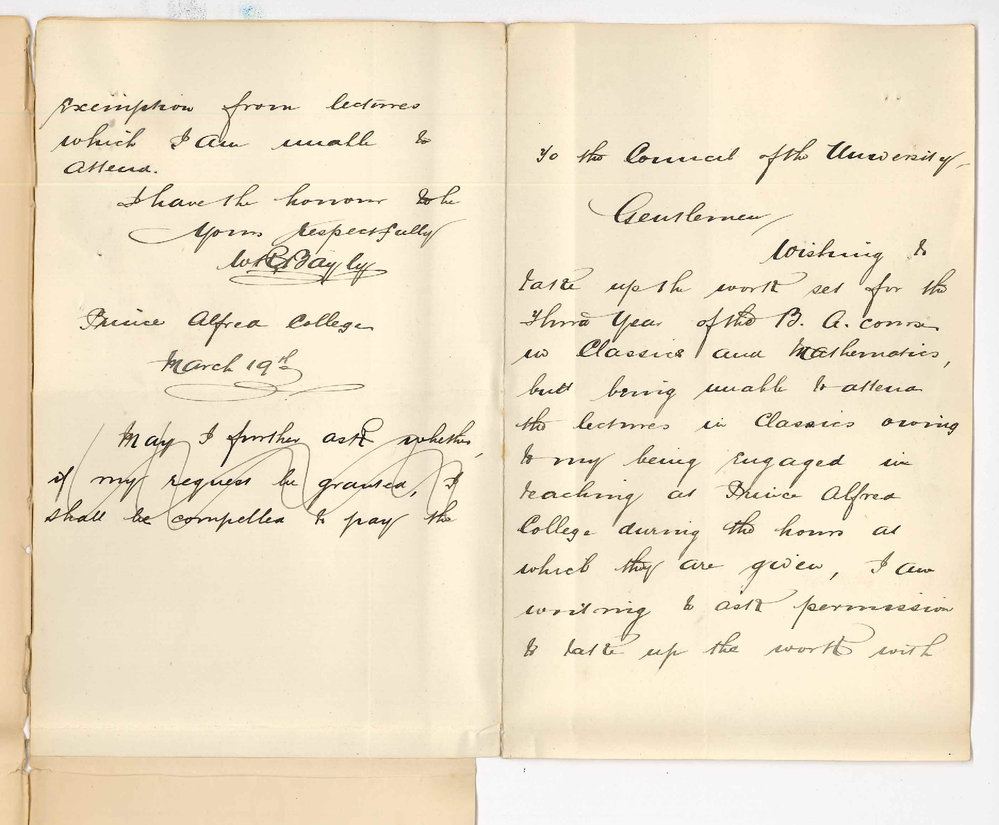 To the Council of the University,
Gentlemen,
Wishing to
take up the work set for the
Third Year of the B. A. course
in Classics and Mathematics,
but being unable to attend
the lectures in Classics owing
to my being engaged in
teaching at Prince Alfred
College during the hours at
which they are given, I am
writing to ask permission
to take up the work with
Exemption from lectures
which I am unable to
attend.
I have the honour to be
Yours respectfully
W R Bayly
Prince Alfred College
March 19th
May I further ask whether,
if my request be granted, I
shall be compelled to pay the